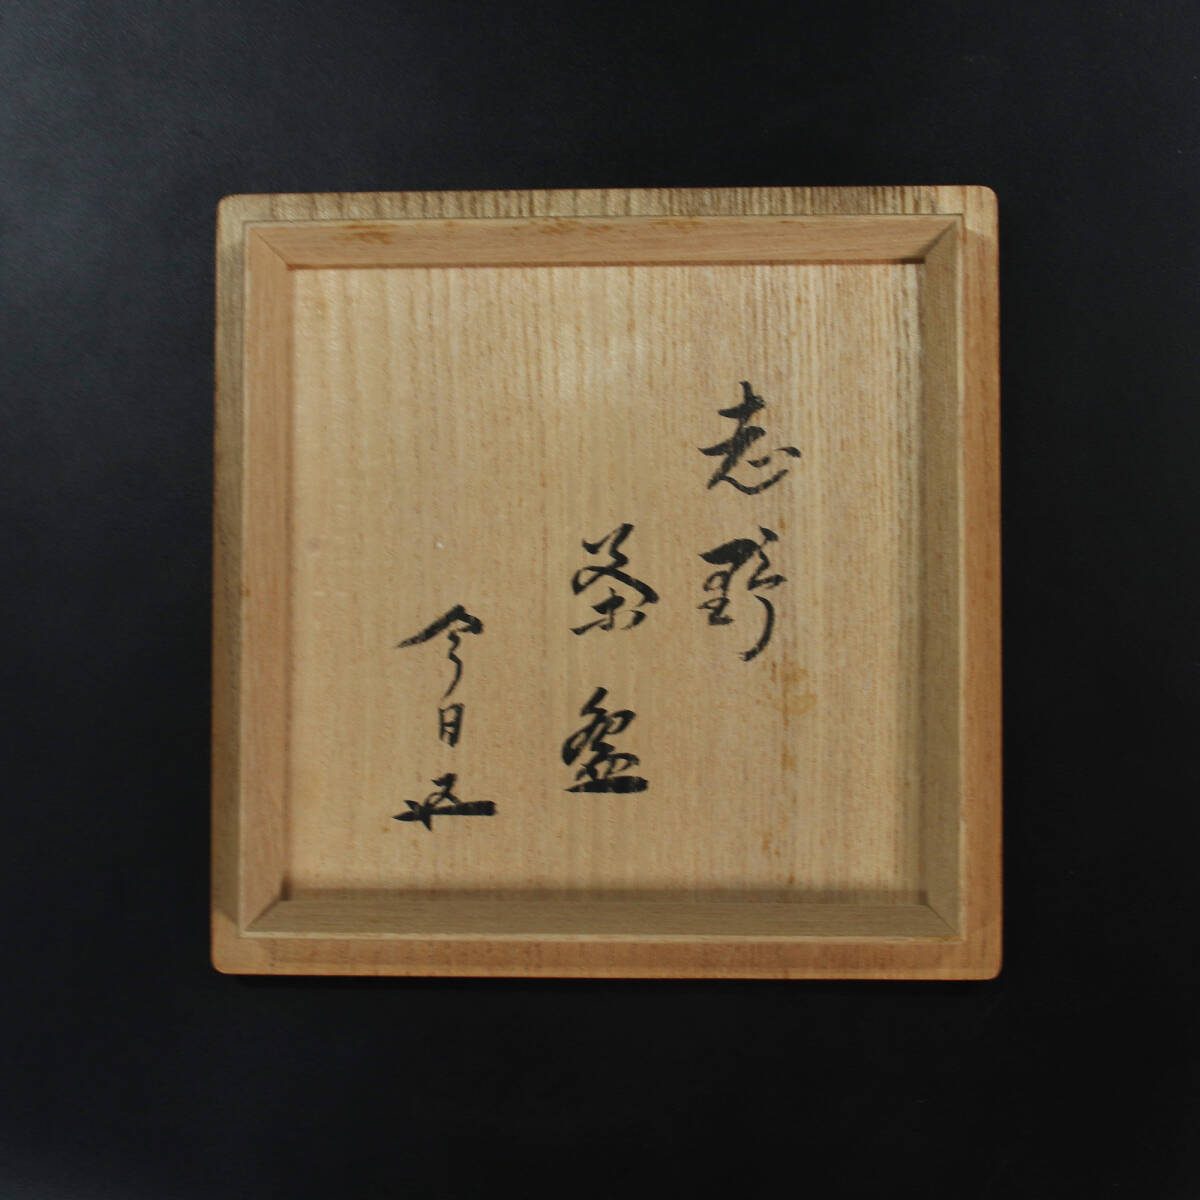 志野
茶盌
今日